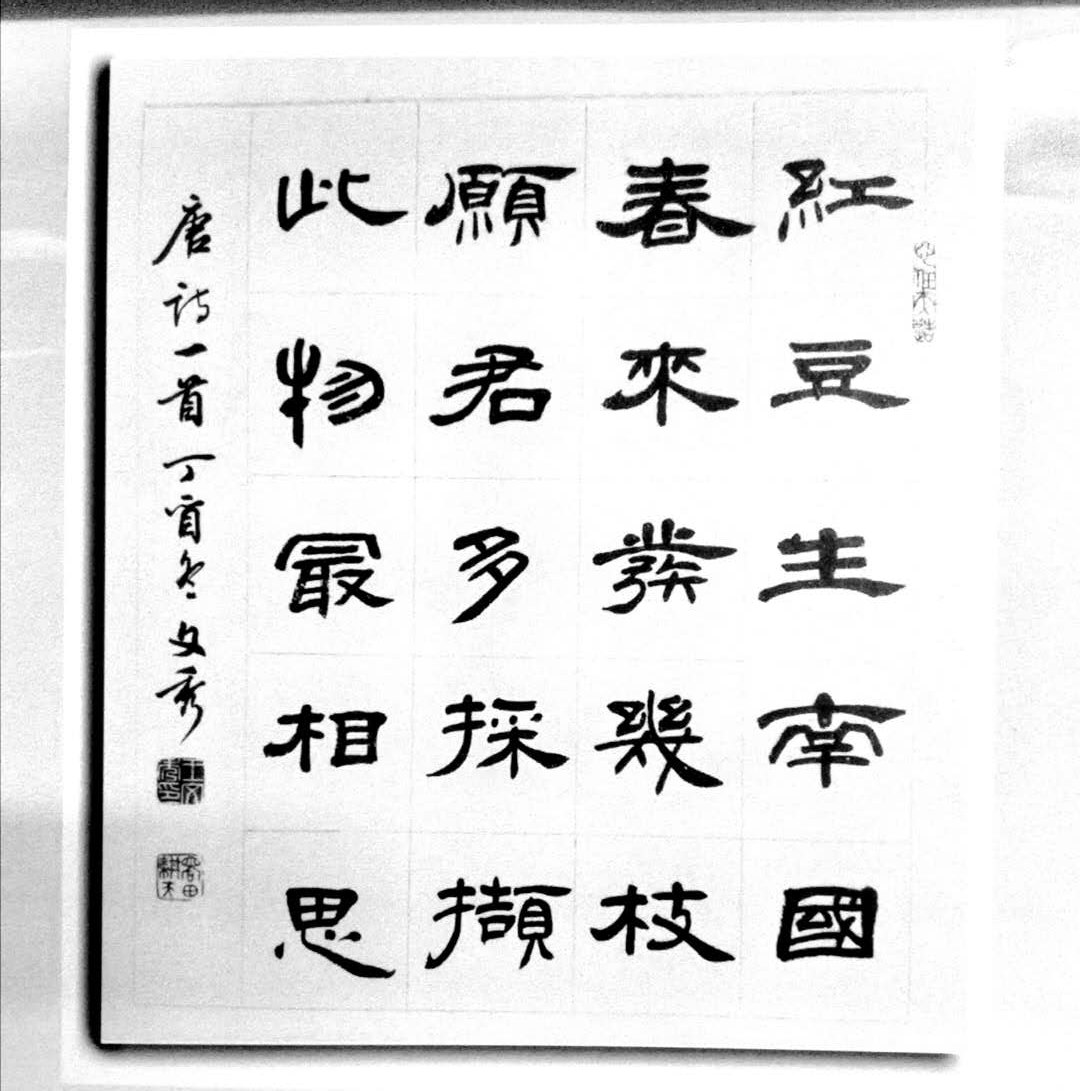 紅豆生南國
春來發幾枝
願君多採擷
此物最相思
唐詩一首丁酉冬文秀